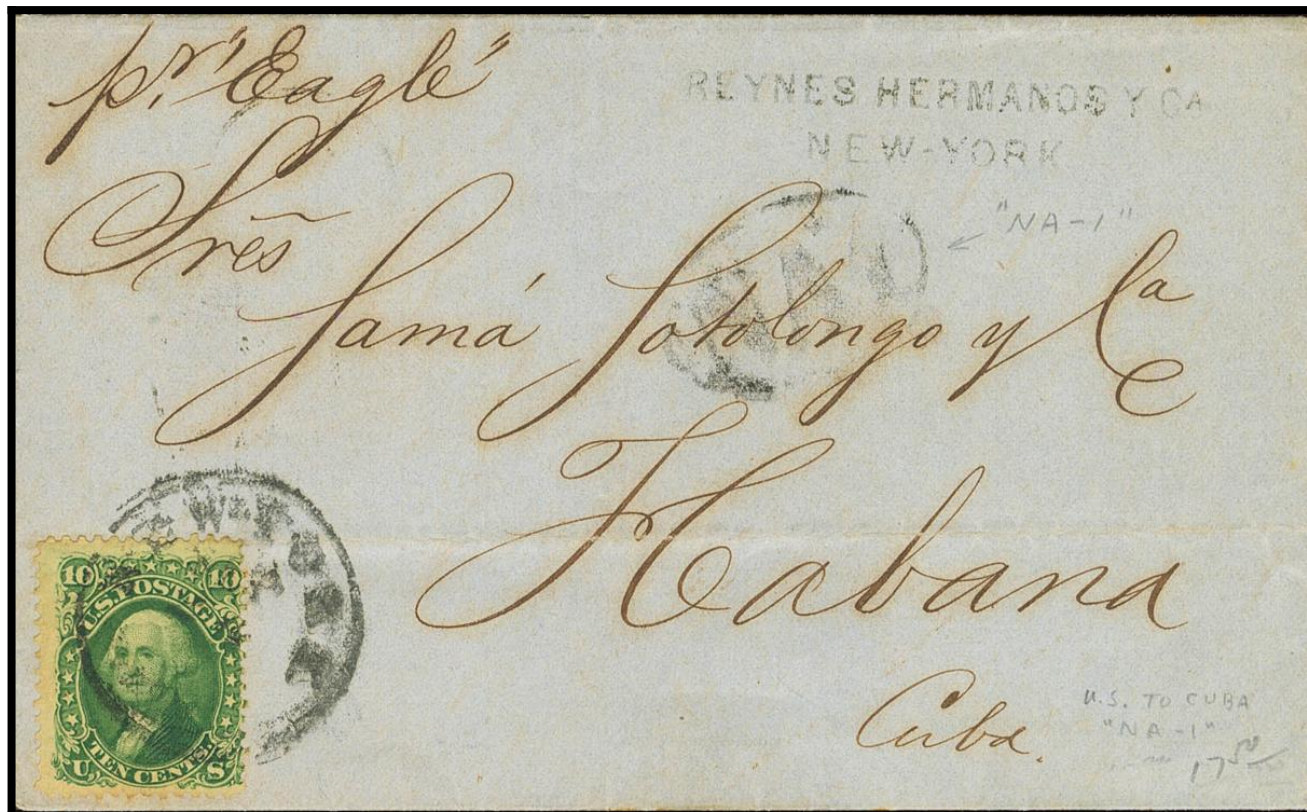 pr. "Eagle"
REYNES HERMANOS Y CA
NEW-YORK
"NA-1"
Sres
Samá Sotolongo y Ca
Habana
Cuba.
NEW YORK
10 10
U.S. POSTAGE
TEN CENTS.
U S
U.S. TO CUBA
"NA-1"
17 50